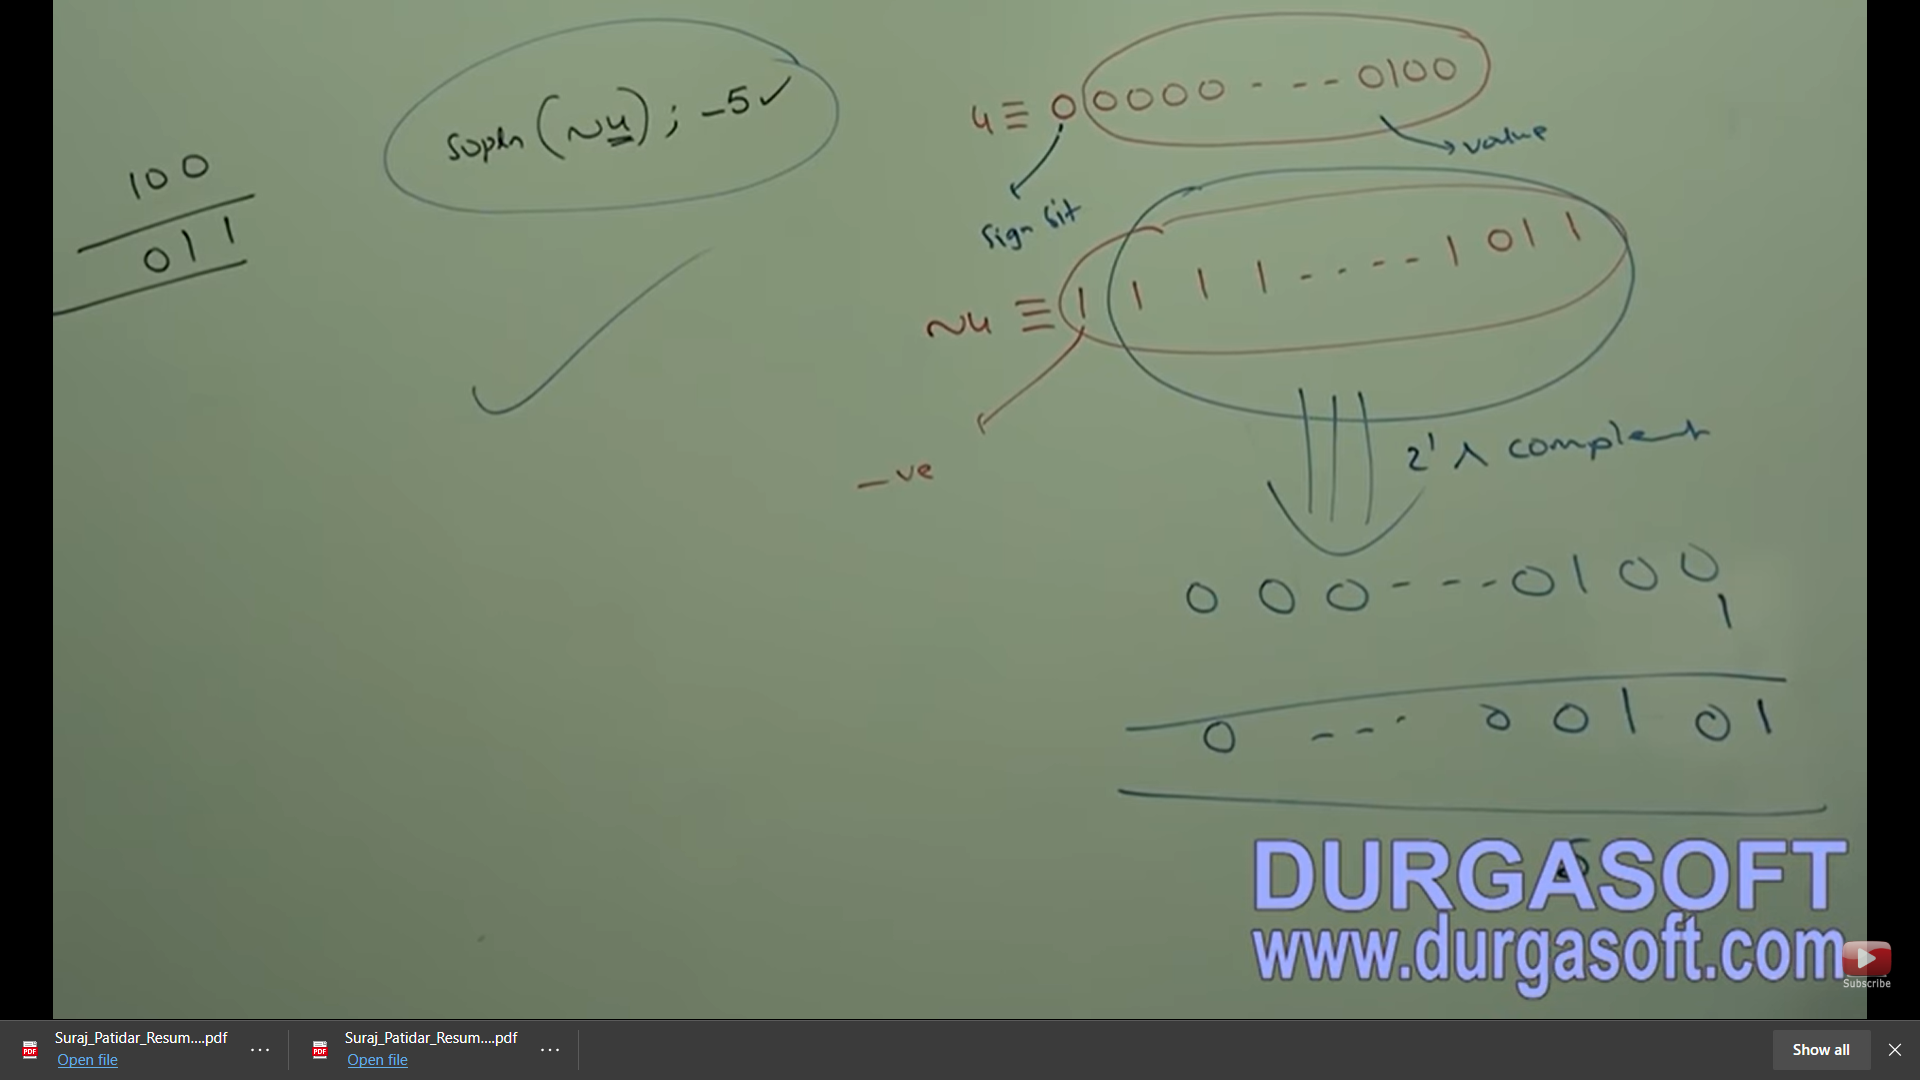 100
011
Sopln (~4); -5✓
4 ≡ 00000---0100
value
sign bit
~4 ≡ 1 1 1 1 ---- 1 0 1 1
-ve
2's complement
0 0 0 --- 0 1 0 0
1
0 --- 0 0 1 0 1
5
DURGASOFT
www.durgasoft.com
Subscribe
Suraj_Patidar_Resum....pdf
Open file
Suraj_Patidar_Resum....pdf
Open file
Show all